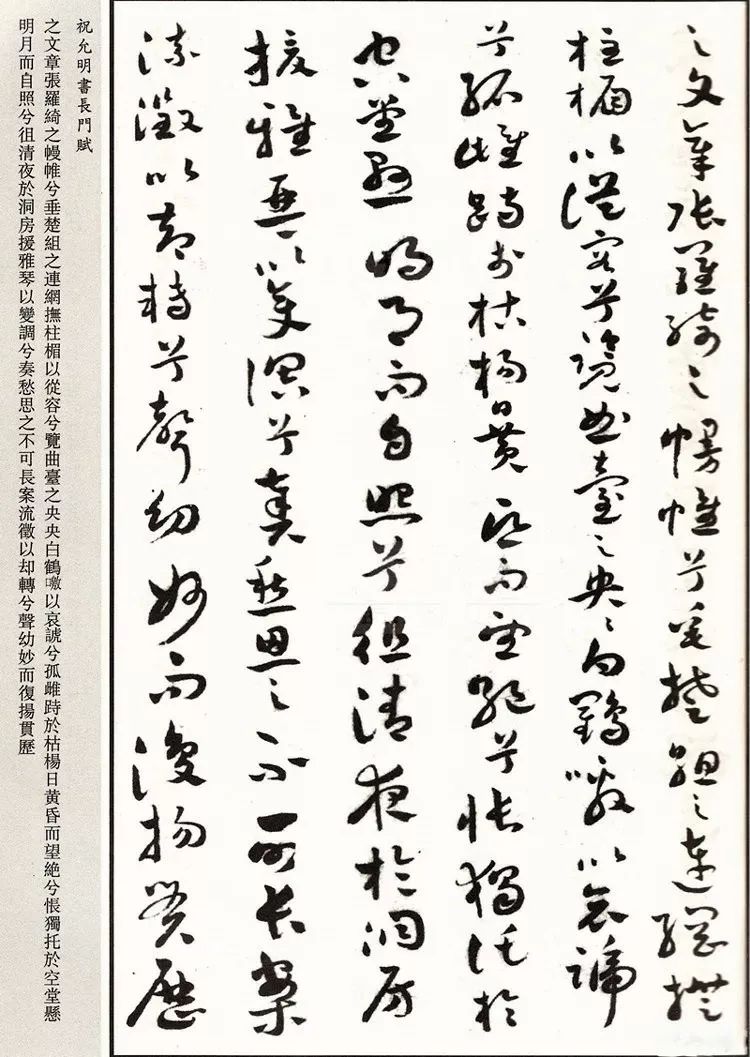 之文章張羅綺之幔帷兮垂楚組之連網撫
柱楣以從容兮覽曲臺之央央白鶴噭以哀諕
兮孤雌跱於枯楊日黄昏而望絶兮悵獨托於
空堂懸明月而自照兮徂清夜於洞房
援雅琴以變調兮奏愁思之不可長案
流徵以却轉兮聲幼妙而復揚貫歷
祝允明書長門賦
之文章張羅綺之幔帷兮垂楚組之連網撫柱楣以從容兮覽曲臺之央央白鶴噭以哀諕兮孤雌跱於枯楊日黄昏而望絶兮悵獨托於空堂懸
明月而自照兮徂清夜於洞房援雅琴以變調兮奏愁思之不可長案流徵以却轉兮聲幼妙而復揚貫歷